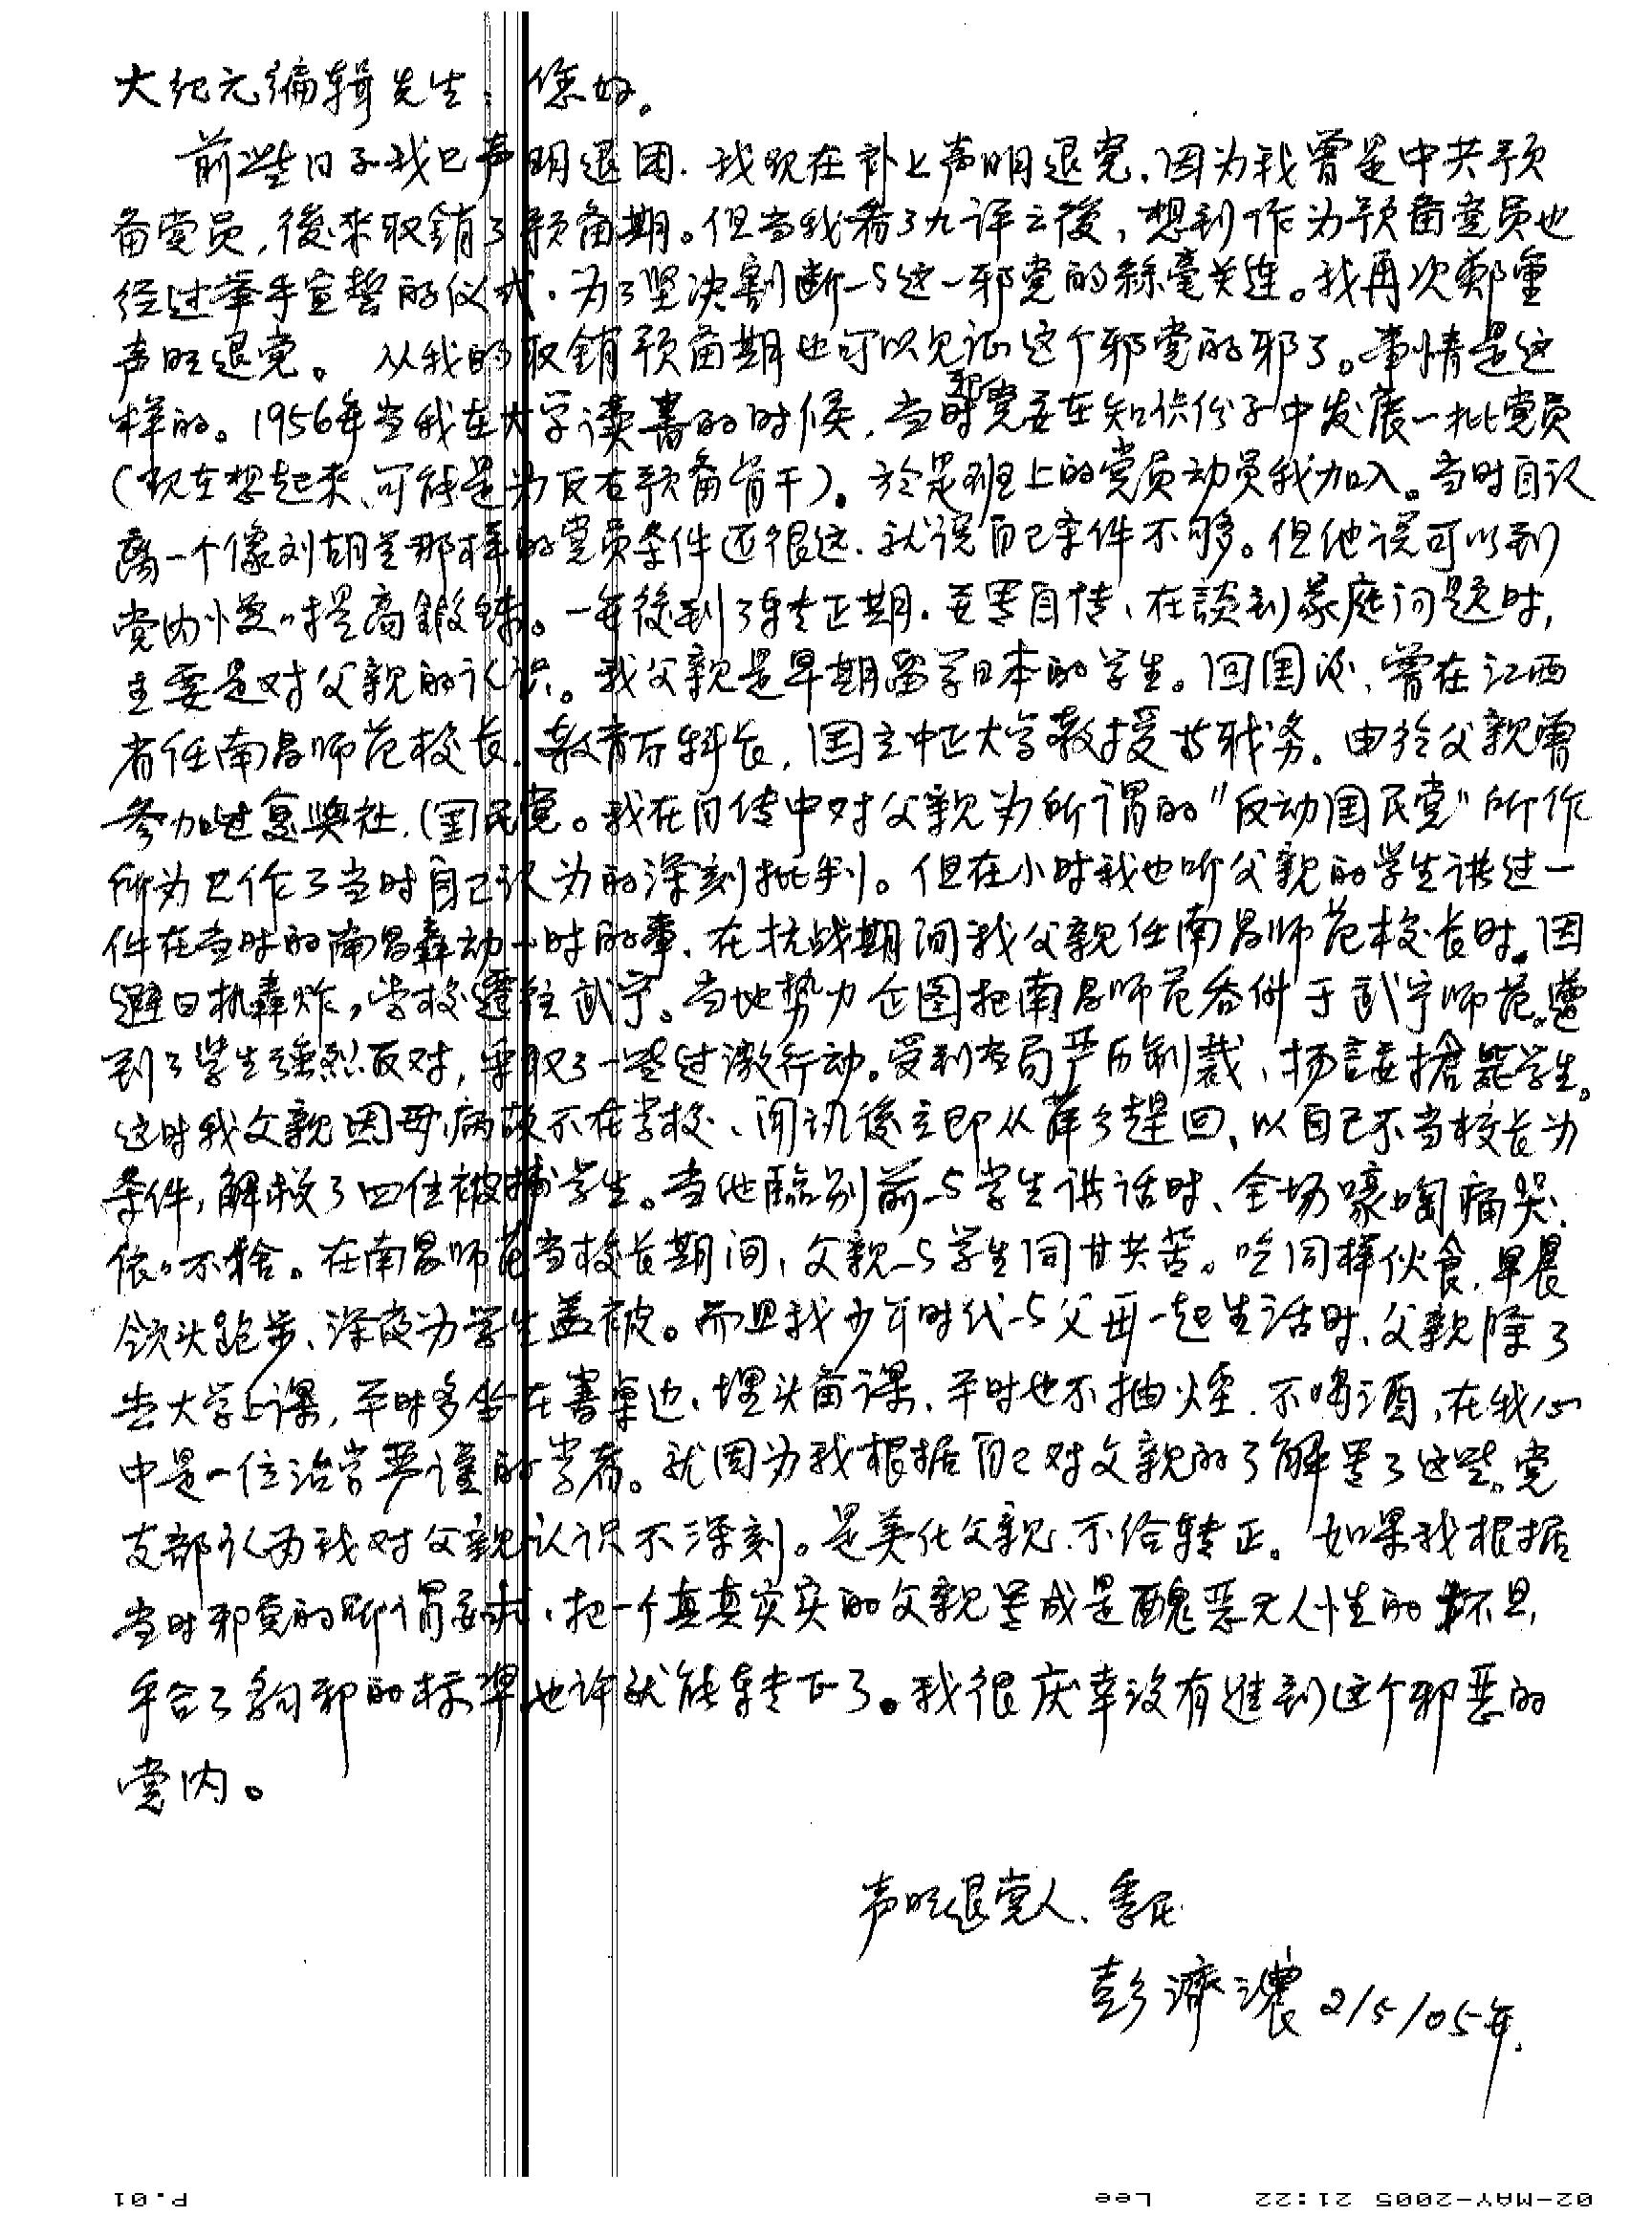 大纪元编辑先生：您好。
前些日子我已声明退团.我现在补上声明退党.因为我曾是中共预
备党员,後来取銷了预备期。但当我看了九评之後,想到作为预备党员也
经过举手宣誓的仪式.为了坚决割断与这一邪党的絲毫关连。我再次鄭重
声明退党。从我的取銷预备期也可以见证这个邪党的邪了。事情是这
样的。1956年当我在大学读書的时候,当时邪党要在知识份子中发展一批党员
(现在想起来、可能是为反右预备骨干)。於是班上的党员动员我加入。当时自认
离一个像刘胡兰那样的党员条件还很远.就说自己条件不够。但他说可以到
党内慢々提高鍛鍊。一年後到了转正期.要写自传、在談到家庭问题时,
主要是对父親的认识。我父親是早期留学日本的学生。回国後、曾在江西
省任南昌师范校长.教育厅科长,国立中正大学教授等职务。由於父親曾
参加过复興社.(国民党。我在自传中对父親为所谓的"反动国民党"所作
所为已作了当时自己认为的深刻批判。但在小时我也听父親的学生讲过一
件在当时的南昌轰动一时的事.在抗战期间我父親任南昌师范校长时.因
避日机轰炸,学校遷往武宁。当地势力企图把南昌师范吞併于武宁师范。遭
到了学生强烈反对,采取了一些过激行动。受到当局严厉制裁、扬言要搶毙学生。
这时我父親因母病故不在学校、闻讯後立即从萍乡趕回、以自己不当校长为
条件,解救了四位被捕学生。当他臨别前与学生讲话时、全场嚎啕痛哭.
依々不捨。在南昌师范当校长期间,父親与学生同甘共苦。吃同样伙食.早晨
领头跑步、深夜为学生盖被。而且我少年时代与父母一起生活时、父親除了
去大学上课,平时多坐在書桌边.埋头备课.平时也不抽烟.不喝酒,在我心
中是一位治学严谨的学者。就因为我根据自己对父親的了解写了这些。党
支部认为我对父親认识不深刻。是美化父親.不给转正。如果我根据
当时邪党的所谓要求.把一个真真实实的父親写成是醜恶无人性的坏旦,
乎合了邪的标準也许就能转正了。我很庆幸没有進到这个邪恶的
党内。
声明退党人、季民
彭濟濃 2/5/05年.
P.01 Lee 02-MAY-2005 21:22